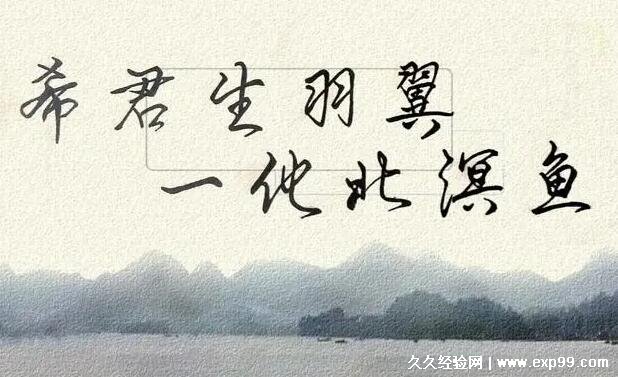 希君生羽翼
一化北溟鱼
久久经验网 | www.exp99.com